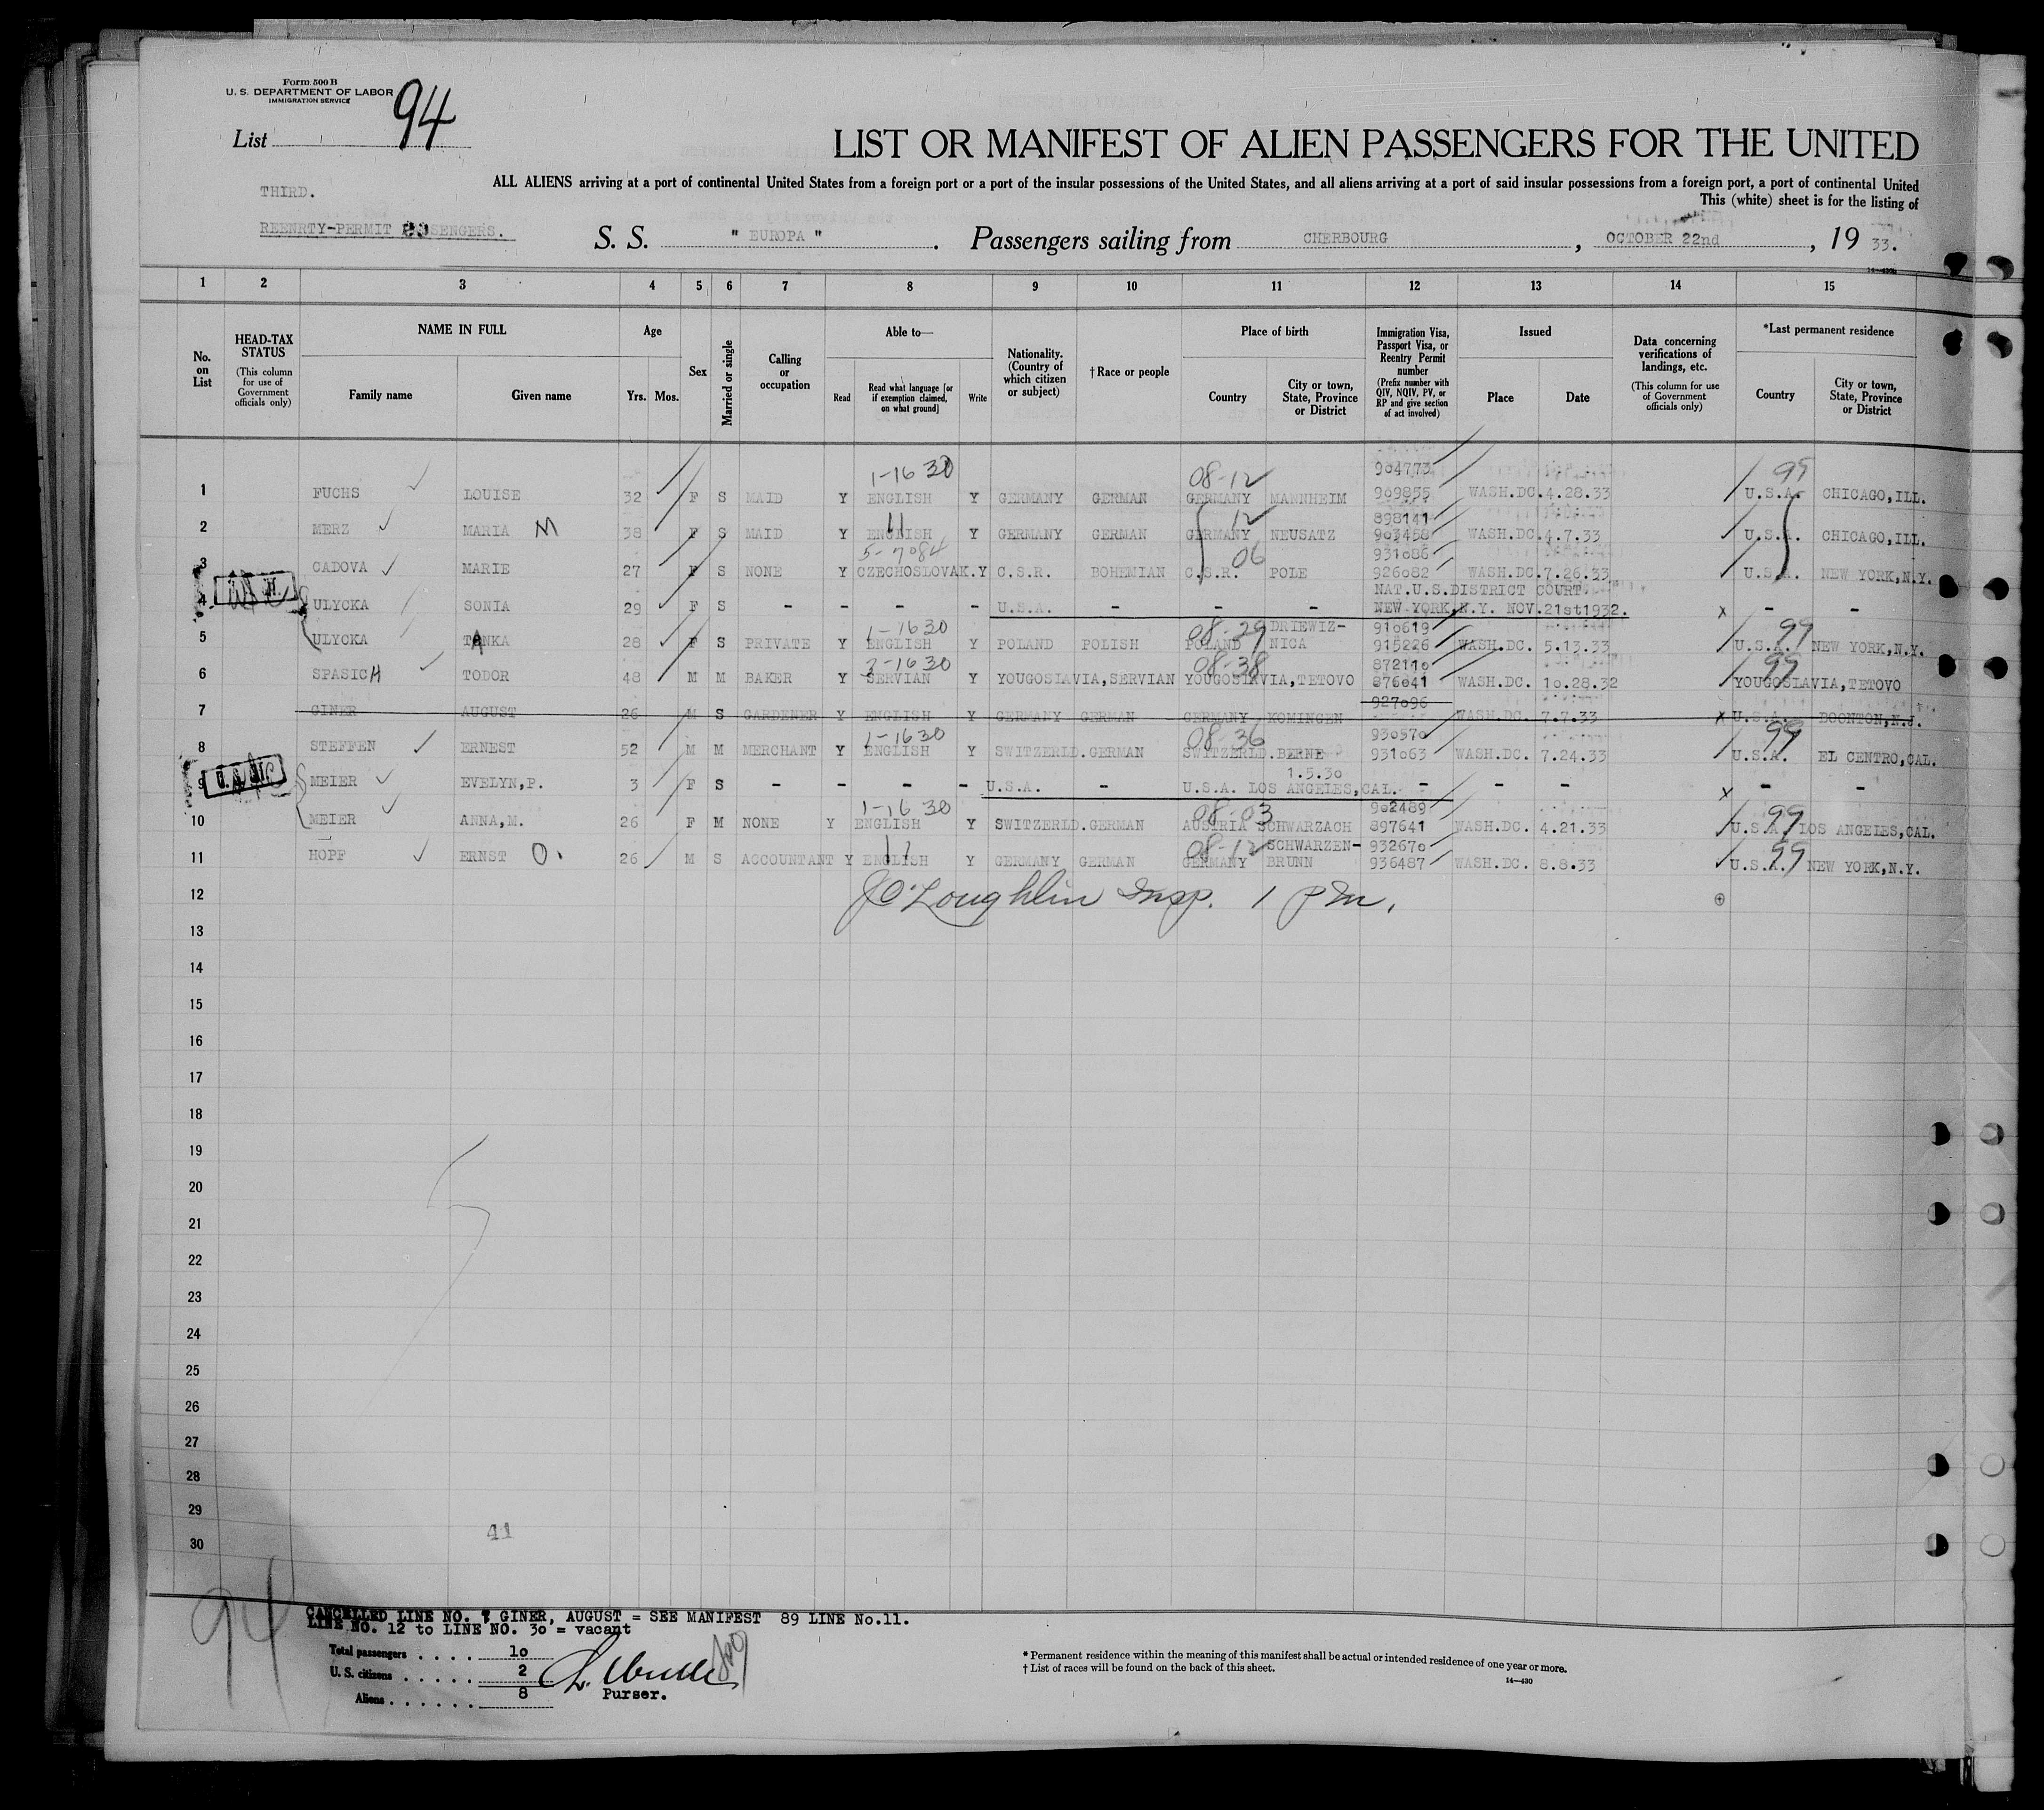 Form 500 B
U. S. DEPARTMENT OF LABOR
IMMIGRATION SERVICE
List 94
LIST OR MANIFEST OF ALIEN PASSENGERS FOR THE UNITED
ALL ALIENS arriving at a port of continental United States from a foreign port or a port of the insular possessions of the United States, and all aliens arriving at a port of said insular possessions from a foreign port, a port of continental United
This (white) sheet is for the listing of
THIRD.
REENRTY-PERMIT PASSENGERS.
S. S. " EUROPA " . Passengers sailing from CHERBOURG , OCTOBER 22nd , 19 33.
14—430
1 2 3 4 5 6 7 8 9 10 11 12 13 14 15
No. on List
HEAD-TAX STATUS (This column for use of Government officials only)
NAME IN FULL
Family name Given name
Age
Yrs. Mos.
Sex
Married or single
Calling or occupation
Able to—
Read Read what language [or if exemption claimed, on what ground] Write
Nationality. (Country of which citizen or subject)
†Race or people
Place of birth
Country City or town, State, Province or District
Immigration Visa, Passport Visa, or Reentry Permit number (Prefix number with QIV, NQIV, PV, or RP and give section of act involved)
Issued
Place Date
Data concerning verifications of landings, etc. (This column for use of Government officials only)
*Last permanent residence
Country City or town, State, Province or District
1-1630 08-12 904773 99
1 FUCHS LOUISE 32 F S MAID Y ENGLISH Y GERMANY GERMAN GERMANY MANNHEIM 909855 WASH.DC.4.28.33 U.S.A. CHICAGO,ILL.
11 12 898141
2 MERZ MARIA M 38 F S MAID Y ENGLISH Y GERMANY GERMAN GERMANY NEUSATZ 903458 WASH.DC.4.7.33 U.S.A. CHICAGO,ILL.
5-7084 06 931086
3 CADOVA MARIE 27 F S NONE Y CZECHOSLOVAK.Y C.S.R. BOHEMIAN C.S.R. POLE 926082 WASH.DC.7.26.33 U.S.A. NEW YORK,N.Y.
NAT.U.S.DISTRICT COURT
4 ULYCKA SONIA 29 F S - - - - U.S.A. - - - NEW YORK,N.Y. NOV.21st1932. x - -
1-1630 08-29 DRIEWIZ- 910619 99
5 ULYCKA TANKA 28 F S PRIVATE Y ENGLISH Y POLAND POLISH POLAND NICA 915226 WASH.DC. 5.13.33 U.S.A. NEW YORK,N.Y.
3-1630 08-38 872110 99
6 SPASICH TODOR 48 M M BAKER Y SERVIAN Y YOUGOSLAVIA,SERVIAN YOUGOSLAVIA,TETOVO 876041 WASH.DC. 10.28.32 YOUGOSLAVIA,TETOVO
927096
7 GINER AUGUST 26 M S GARDENER Y ENGLISH Y GERMANY GERMAN GERMANY KOMINGEN WASH.DC. 7.7.33 x U.S.A. BOONTON,N.J.
1-1630 08-36 930570 99
8 STEFFEN ERNEST 52 M M MERCHANT Y ENGLISH Y SWITZERLD.GERMAN SWITZERLD.BERNE 931063 WASH.DC. 7.24.33 U.S.A. EL CENTRO,CAL.
1.5.30
9 MEIER EVELYN,P. 3 F S - - - - U.S.A. - U.S.A. LOS ANGELES,CAL. - - - x - -
1-1630 08-03 902489 99
10 MEIER ANNA,M. 26 F M NONE Y ENGLISH Y SWITZERLD.GERMAN AUSTRIA SCHWARZACH 897641 WASH.DC. 4.21.33 U.S.A. LOS ANGELES,CAL.
11 08-12 SCHWARZEN- 932670 99
11 HOPF ERNST O. 26 M S ACCOUNTANT Y ENGLISH Y GERMANY GERMAN GERMANY BRUNN 936487 WASH.DC. 8.8.33 U.S.A. NEW YORK,N.Y.
12 JO'Loughlin Insp. 1 pm.
13
14
15
16
17
18
19
20
21
22
23
24
25
26
27
28
29
30
41
94
CANCELLED LINE NO. 7 GINER, AUGUST = SEE MANIFEST 89 LINE No.11.
LINE NO. 12 to LINE NO. 30 = vacant
Total passengers . . . . 10
U. S. citizens . . . . . . 2
Aliens . . . . . . 8
Purser.
* Permanent residence within the meaning of this manifest shall be actual or intended residence of one year or more.
† List of races will be found on the back of this sheet.
14—430